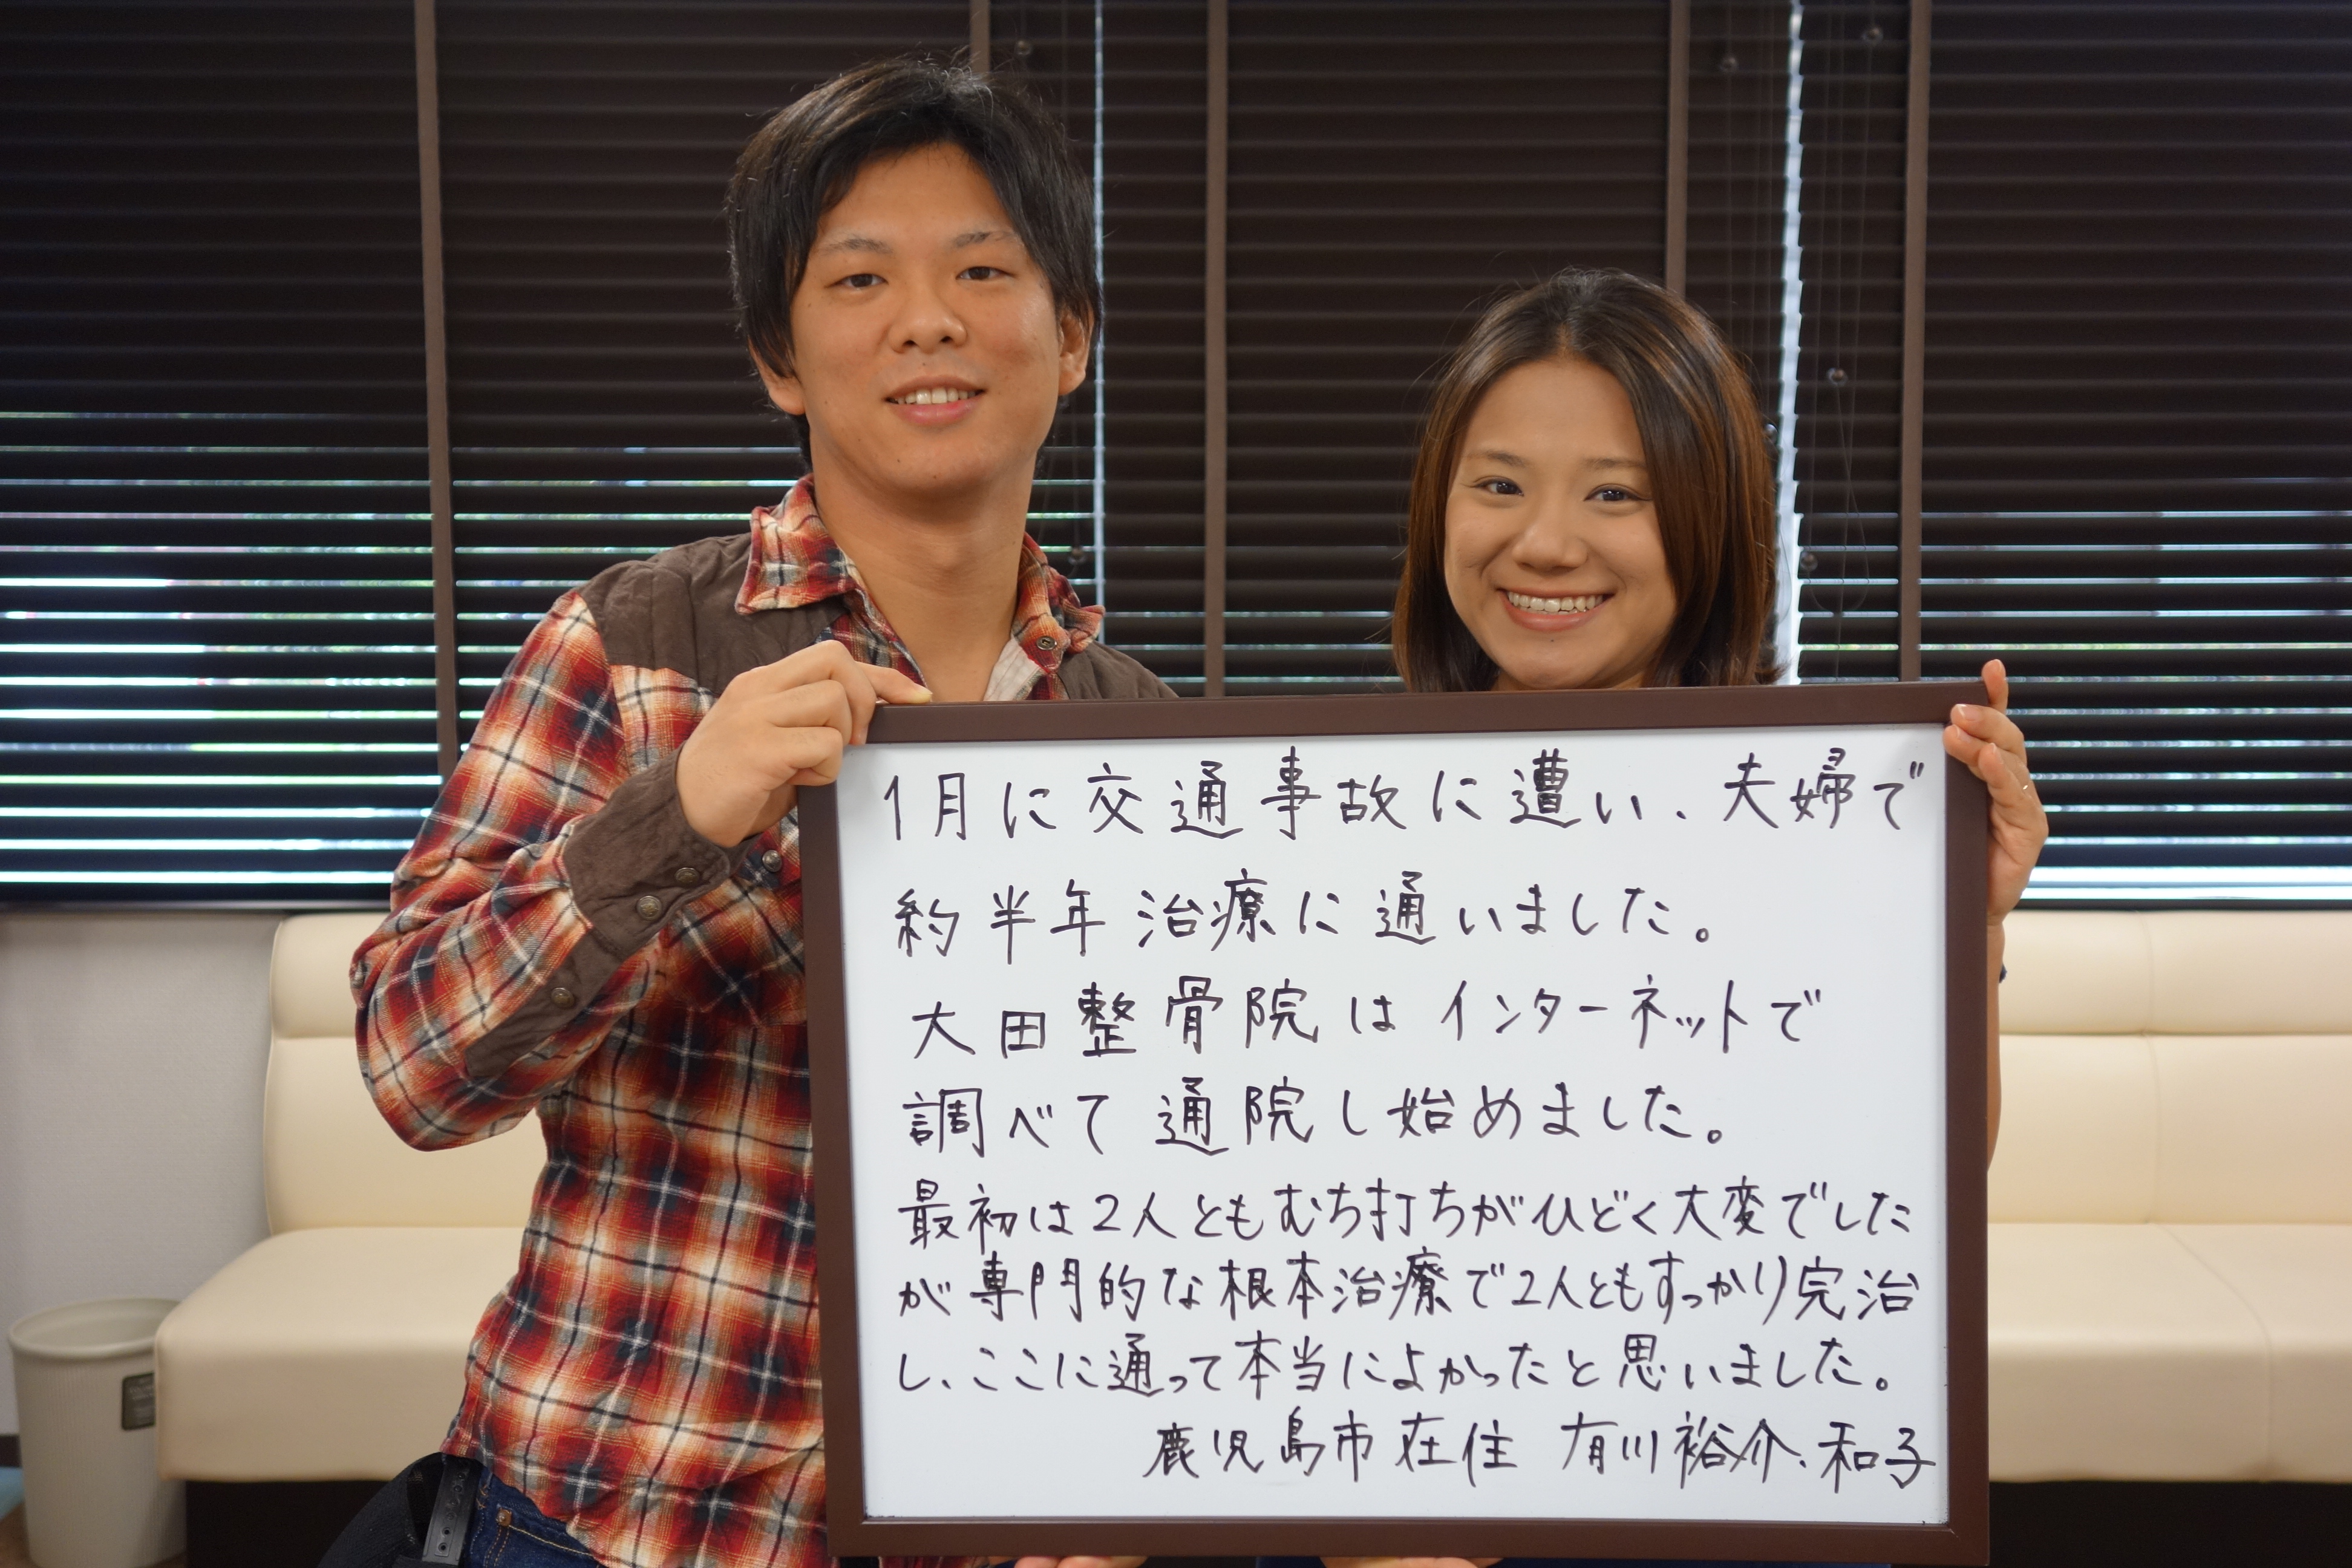 1月に交通事故に遭い、夫婦で
約半年治療に通いました。
大田整骨院はインターネットで
調べて通院し始めました。
最初は2人ともむち打ちがひどく大変でした
が専門的な根本治療で2人ともすっかり完治
し、ここに通って本当によかったと思いました。
鹿児島市在住 有川裕介、和子